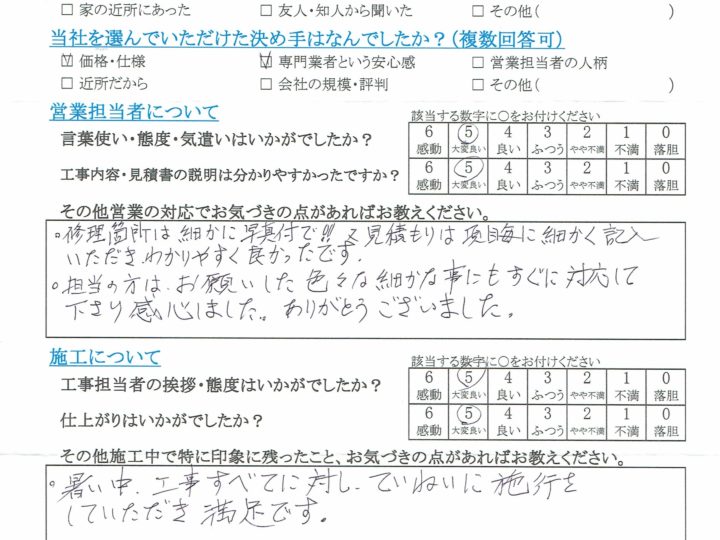 □ 家の近所にあった □ 友人・知人から聞いた □ その他( )
当社を選んでいただけた決め手はなんでしたか?(複数回答可)
☑ 価格・仕様 ☑ 専門業者という安心感 □ 営業担当者の人柄
□ 近所だから □ 会社の規模・評判 □ その他( )
営業担当者について
該当する数字に○をお付けください
言葉使い・態度・気遣いはいかがでしたか?
6 5 4 3 2 1 0
感動 大変良い 良い ふつう やや不満 不満 落胆
工事内容・見積書の説明は分かりやすかったですか?
6 5 4 3 2 1 0
感動 大変良い 良い ふつう やや不満 不満 落胆
その他営業の対応でお気づきの点があればお教えください。
。修理箇所は細かに写真付で!! 又見積もりは項目毎に細かく記入
いただき、わかりやすく良かったです.
。担当の方は、お願いした色々な細かな事にもすぐに対応して
下さり感心しました。ありがとうございました。
施工について
該当する数字に○をお付けください
工事担当者の挨拶・態度はいかがでしたか?
6 5 4 3 2 1 0
感動 大変良い 良い ふつう やや不満 不満 落胆
仕上がりはいかがでしたか?
6 5 4 3 2 1 0
感動 大変良い 良い ふつう やや不満 不満 落胆
その他施工中で特に印象に残ったこと、お気づきの点があればお教えください。
。暑い中、工事すべてに対し、ていねいに施行を
していただき満足です。